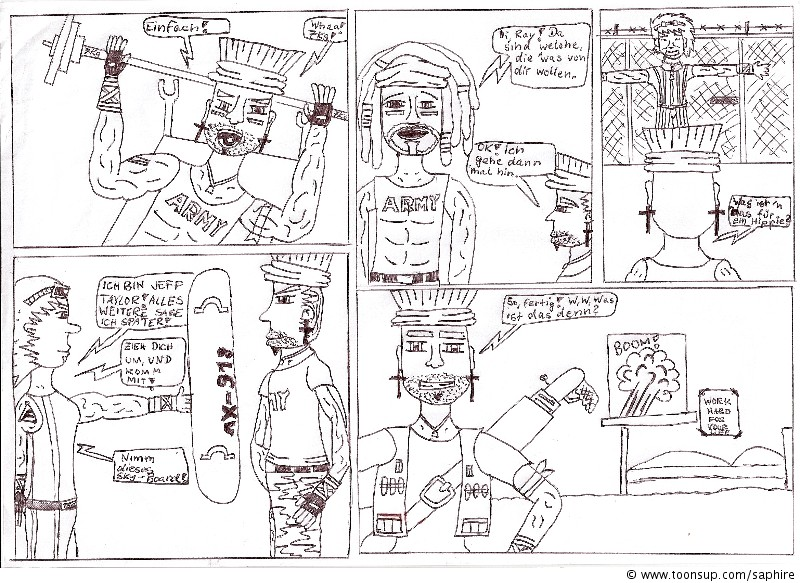 Einfach!
ARMY
Hi, Ray! Da
sind welche,
die was von
dir wollen.
OK! Ich
gehe dann
mal hin.
ARMY
Was ist'n
das für
ein Hippie?
ICH BIN JEFF
TAYLOR! ALLES
WEITERE SAGE
ICH SPÄTER!
ZIEH DICH
UM, UND
KOMM
MIT!
Nimm
dieses
Sky-Board!
AX-918
MY
So, fertig! W, W, Was
ist das denn?
BOOM!
WORK
HARD
FOR
YOUR
© www.toonsup.com/saphire